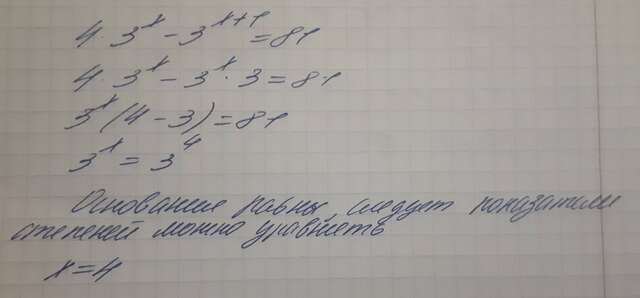 4 3^x - 3^{x+1} = 81
4 3^x - 3^x · 3 = 81
3^x (4 - 3) = 81
3^x = 3^4
Основание равны, следует показатели
степеней можно уравнеть
x = 4